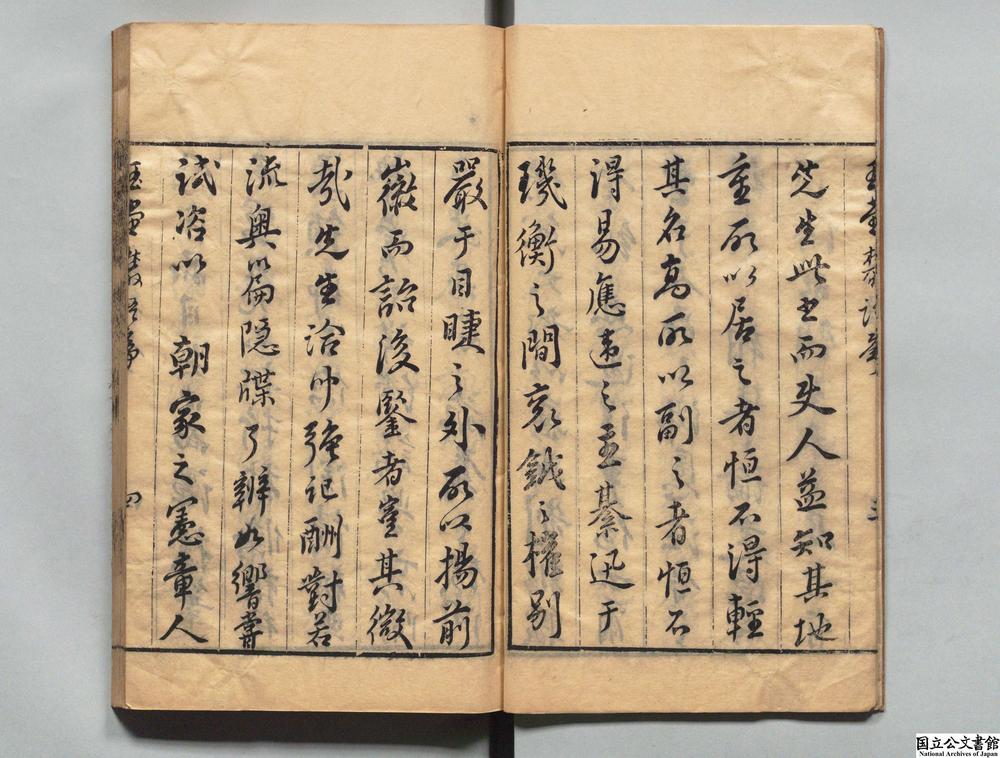 玉堂叢語序
三
先生此出而史人益知其地
重所以居之者恒不得輕
其名高所以副之者恒不
得易應違之至綦迅于
璣衡之間袞鉞之權剔
嚴于目睫之外所以揚前
徽而詔後鑒者實其微
哉先生洽聞強記酬對若
流奧篇隱牒了辨如響嘗
試咨以朝家之憲章人
玉堂叢語序
四
国立公文書館
National Archives of Japan